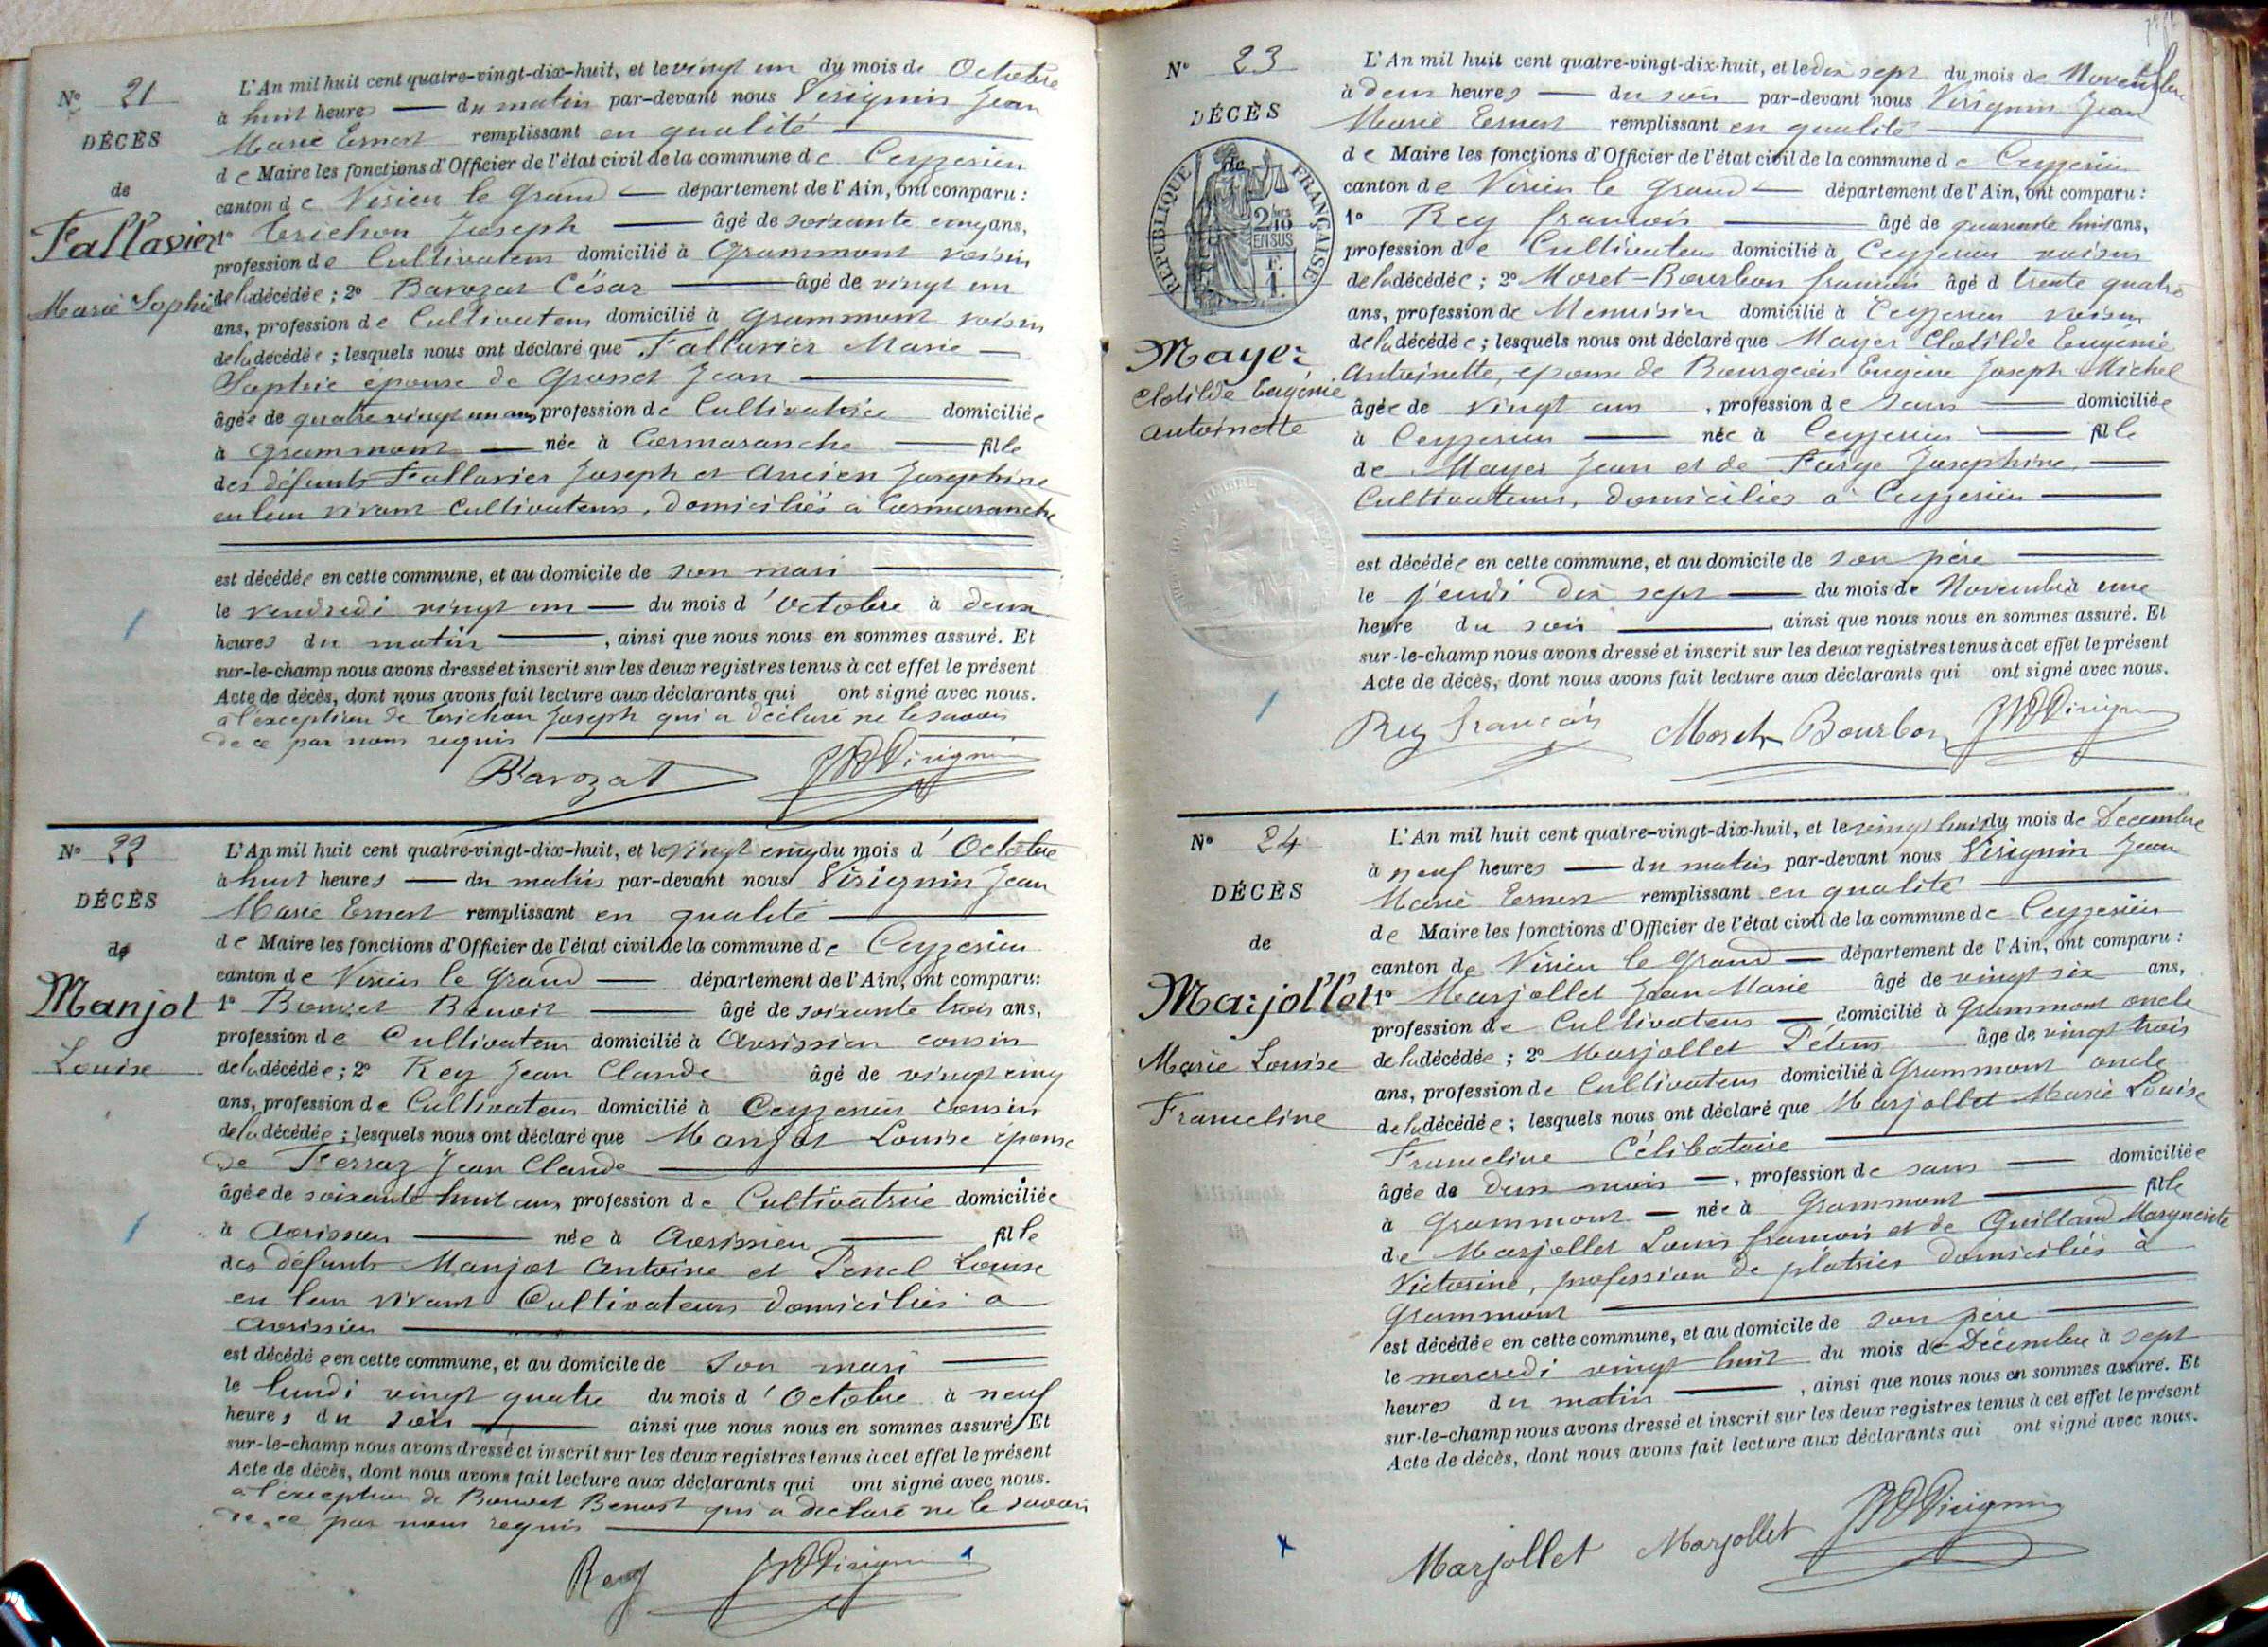 N° 21
DÉCÈS
de
Fallavier
Marie Sophie
L'An mil huit cent quatre-vingt-dix-huit, et le vingt un du mois de Octobre
à huit heures — du matin par-devant nous Virignin Jean
Marie Ernest remplissant en qualité
de Maire les fonctions d'Officier de l'état civil de la commune de Ceyzerieu
canton de Virieu le Grand — département de l'Ain, ont comparu :
1° Trichon Joseph — âgé de soixante cinq ans,
profession de Cultivateur domicilié à Grammont voisin
de la décédée ; 2° Barozat César — âgé de vingt un
ans, profession de Cultivateur domicilié à Grammont voisin
de la décédée ; lesquels nous ont déclaré que Fallavier Marie
Sophie épouse de Grosset Jean
âgée de quatre vingt un ans profession de Cultivatrice domiciliée
à Grammont — née à Cormaranche — fille
des défunts Fallavier Joseph et Ancien Josephine
en leur vivant Cultivateurs, domiciliés à Cormaranche
est décédée en cette commune, et au domicile de son mari
le vendredi vingt un — du mois d'Octobre à deux
heures du matin —, ainsi que nous nous en sommes assuré. Et
sur-le-champ nous avons dressé et inscrit sur les deux registres tenus à cet effet le présent
Acte de décès, dont nous avons fait lecture aux déclarants qui ont signé avec nous.
à l'exception de Trichon Joseph qui a déclaré ne le savoir
de ce par nous requis
Barozat JM Virignin
N° 22
DÉCÈS
de
Manjot
Louise
L'An mil huit cent quatre-vingt-dix-huit, et le vingt cinq du mois d'Octobre
à huit heures — du matin par-devant nous Virignin Jean
Marie Ernest remplissant en qualité
de Maire les fonctions d'Officier de l'état civil de la commune de Ceyzerieu
canton de Virieu le Grand — département de l'Ain, ont comparu :
1° Bonvet Benoit — âgé de soixante trois ans,
profession de Cultivateur domicilié à Avrissieu cousin
de la décédée ; 2° Rey Jean Claude âgé de vingt cinq
ans, profession de Cultivateur domicilié à Ceyzerieu cousin
de la décédée ; lesquels nous ont déclaré que Manjot Louise épouse
de Ferraz Jean Claude
âgée de soixante huit ans profession de Cultivatrice domiciliée
à Avrissieu — née à Avrissieu — fille
des défunts Manjot Antoine et Penel Louise
en leur vivant Cultivateurs domiciliés à
Avrissieu
est décédée en cette commune, et au domicile de son mari
le lundi vingt quatre du mois d'Octobre à neuf
heures du soir — ainsi que nous nous en sommes assuré. Et
sur-le-champ nous avons dressé et inscrit sur les deux registres tenus à cet effet le présent
Acte de décès, dont nous avons fait lecture aux déclarants qui ont signé avec nous.
à l'exception de Bonvet Benoit qui a déclaré ne le savoir
de ce par nous requis
Rey JM Virignin
N° 23
DÉCÈS
de
RÉPUBLIQUE FRANÇAISE
EN SUS
Mayer
Clotilde Eugénie
Antoinette
L'An mil huit cent quatre-vingt-dix-huit, et le dix sept du mois de Novembre
à deux heures — du soir par-devant nous Virignin Jean
Marie Ernest remplissant en qualité
de Maire les fonctions d'Officier de l'état civil de la commune de Ceyzerieu
canton de Virieu le Grand — département de l'Ain, ont comparu :
1° Rey françois — âgé de quarante huit ans,
profession de Cultivateur domicilié à Ceyzerieu voisin
de la décédée ; 2° Moret-Bourbon françois âgé d trente quatre
ans, profession de Menuisier domicilié à Ceyzerieu voisin
de la décédée ; lesquels nous ont déclaré que Mayer Clotilde Eugénie
Antoinette, épouse de Bourgeois Eugène Joseph Michel
âgée de vingt ans, profession de sans — domiciliée
à Ceyzerieu — née à Ceyzerieu — fille
de Mayer Jean et de Farge Josephine
Cultivateurs, domiciliés à Ceyzerieu
est décédée en cette commune, et au domicile de son père
le jeudi dix sept — du mois de Novembre à une
heure du soir —, ainsi que nous nous en sommes assuré. Et
sur-le-champ nous avons dressé et inscrit sur les deux registres tenus à cet effet le présent
Acte de décès, dont nous avons fait lecture aux déclarants qui ont signé avec nous.
Rey François Moret-Bourbon JM Virignin
N° 24
DÉCÈS
de
Marjollet
Marie Louise
Francline
L'An mil huit cent quatre-vingt-dix-huit, et le vingt huit du mois de Decembre
à neuf heures — du matin par-devant nous Virignin Jean
Marie Ernest remplissant en qualité
de Maire les fonctions d'Officier de l'état civil de la commune de Ceyzerieu
canton de Virieu le Grand — département de l'Ain, ont comparu :
1° Marjollet Jean Marie âgé de vingt six ans,
profession de Cultivateur — domicilié à Grammont oncle
de la décédée ; 2° Marjollet Pétrus âgé de vingt trois
ans, profession de Cultivateur domicilié à Grammont oncle
de la décédée ; lesquels nous ont déclaré que Marjollet Marie Louise
Francline Célibataire
âgée de deux mois —, profession de sans — domiciliée
à Grammont — née à Grammont — fille
de Marjollet Louis françois et de Guilland Marguerite
Victorine, profession de platrier domiciliés à
Grammont
est décédée en cette commune, et au domicile de son père
le mercredi vingt huit du mois de Décembre à sept
heures du matin —, ainsi que nous nous en sommes assuré. Et
sur-le-champ nous avons dressé et inscrit sur les deux registres tenus à cet effet le présent
Acte de décès, dont nous avons fait lecture aux déclarants qui ont signé avec nous.
Marjollet Marjollet JM Virignin